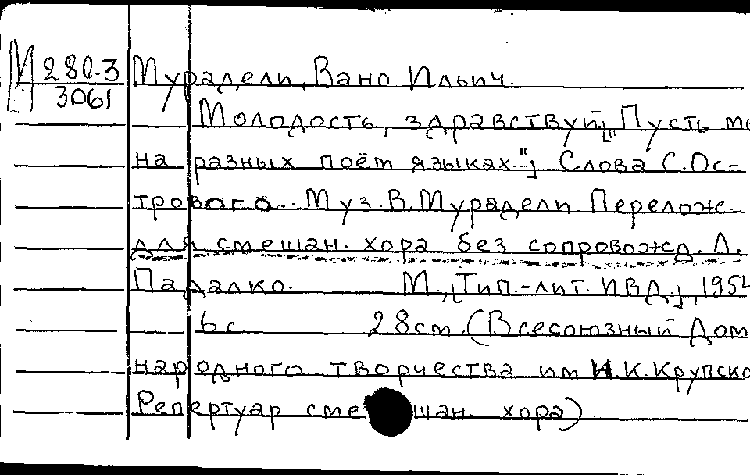 М 280-3
3061
Мурадели, Вано Ильич.
Молодость, здравствуй [„Пусть
на разных поём языках"] Слова С.Ос-
трового. Муз. В.Мурадели. Перелож.
для смешан. хора без сопровожд. Л.
Падалко. М., [Тип.-лит. ИВД.], 1954
6с 28см. (Всесоюзный Дом
народного творчества им Н.К.Крупско
Репертуар смешан. хора)